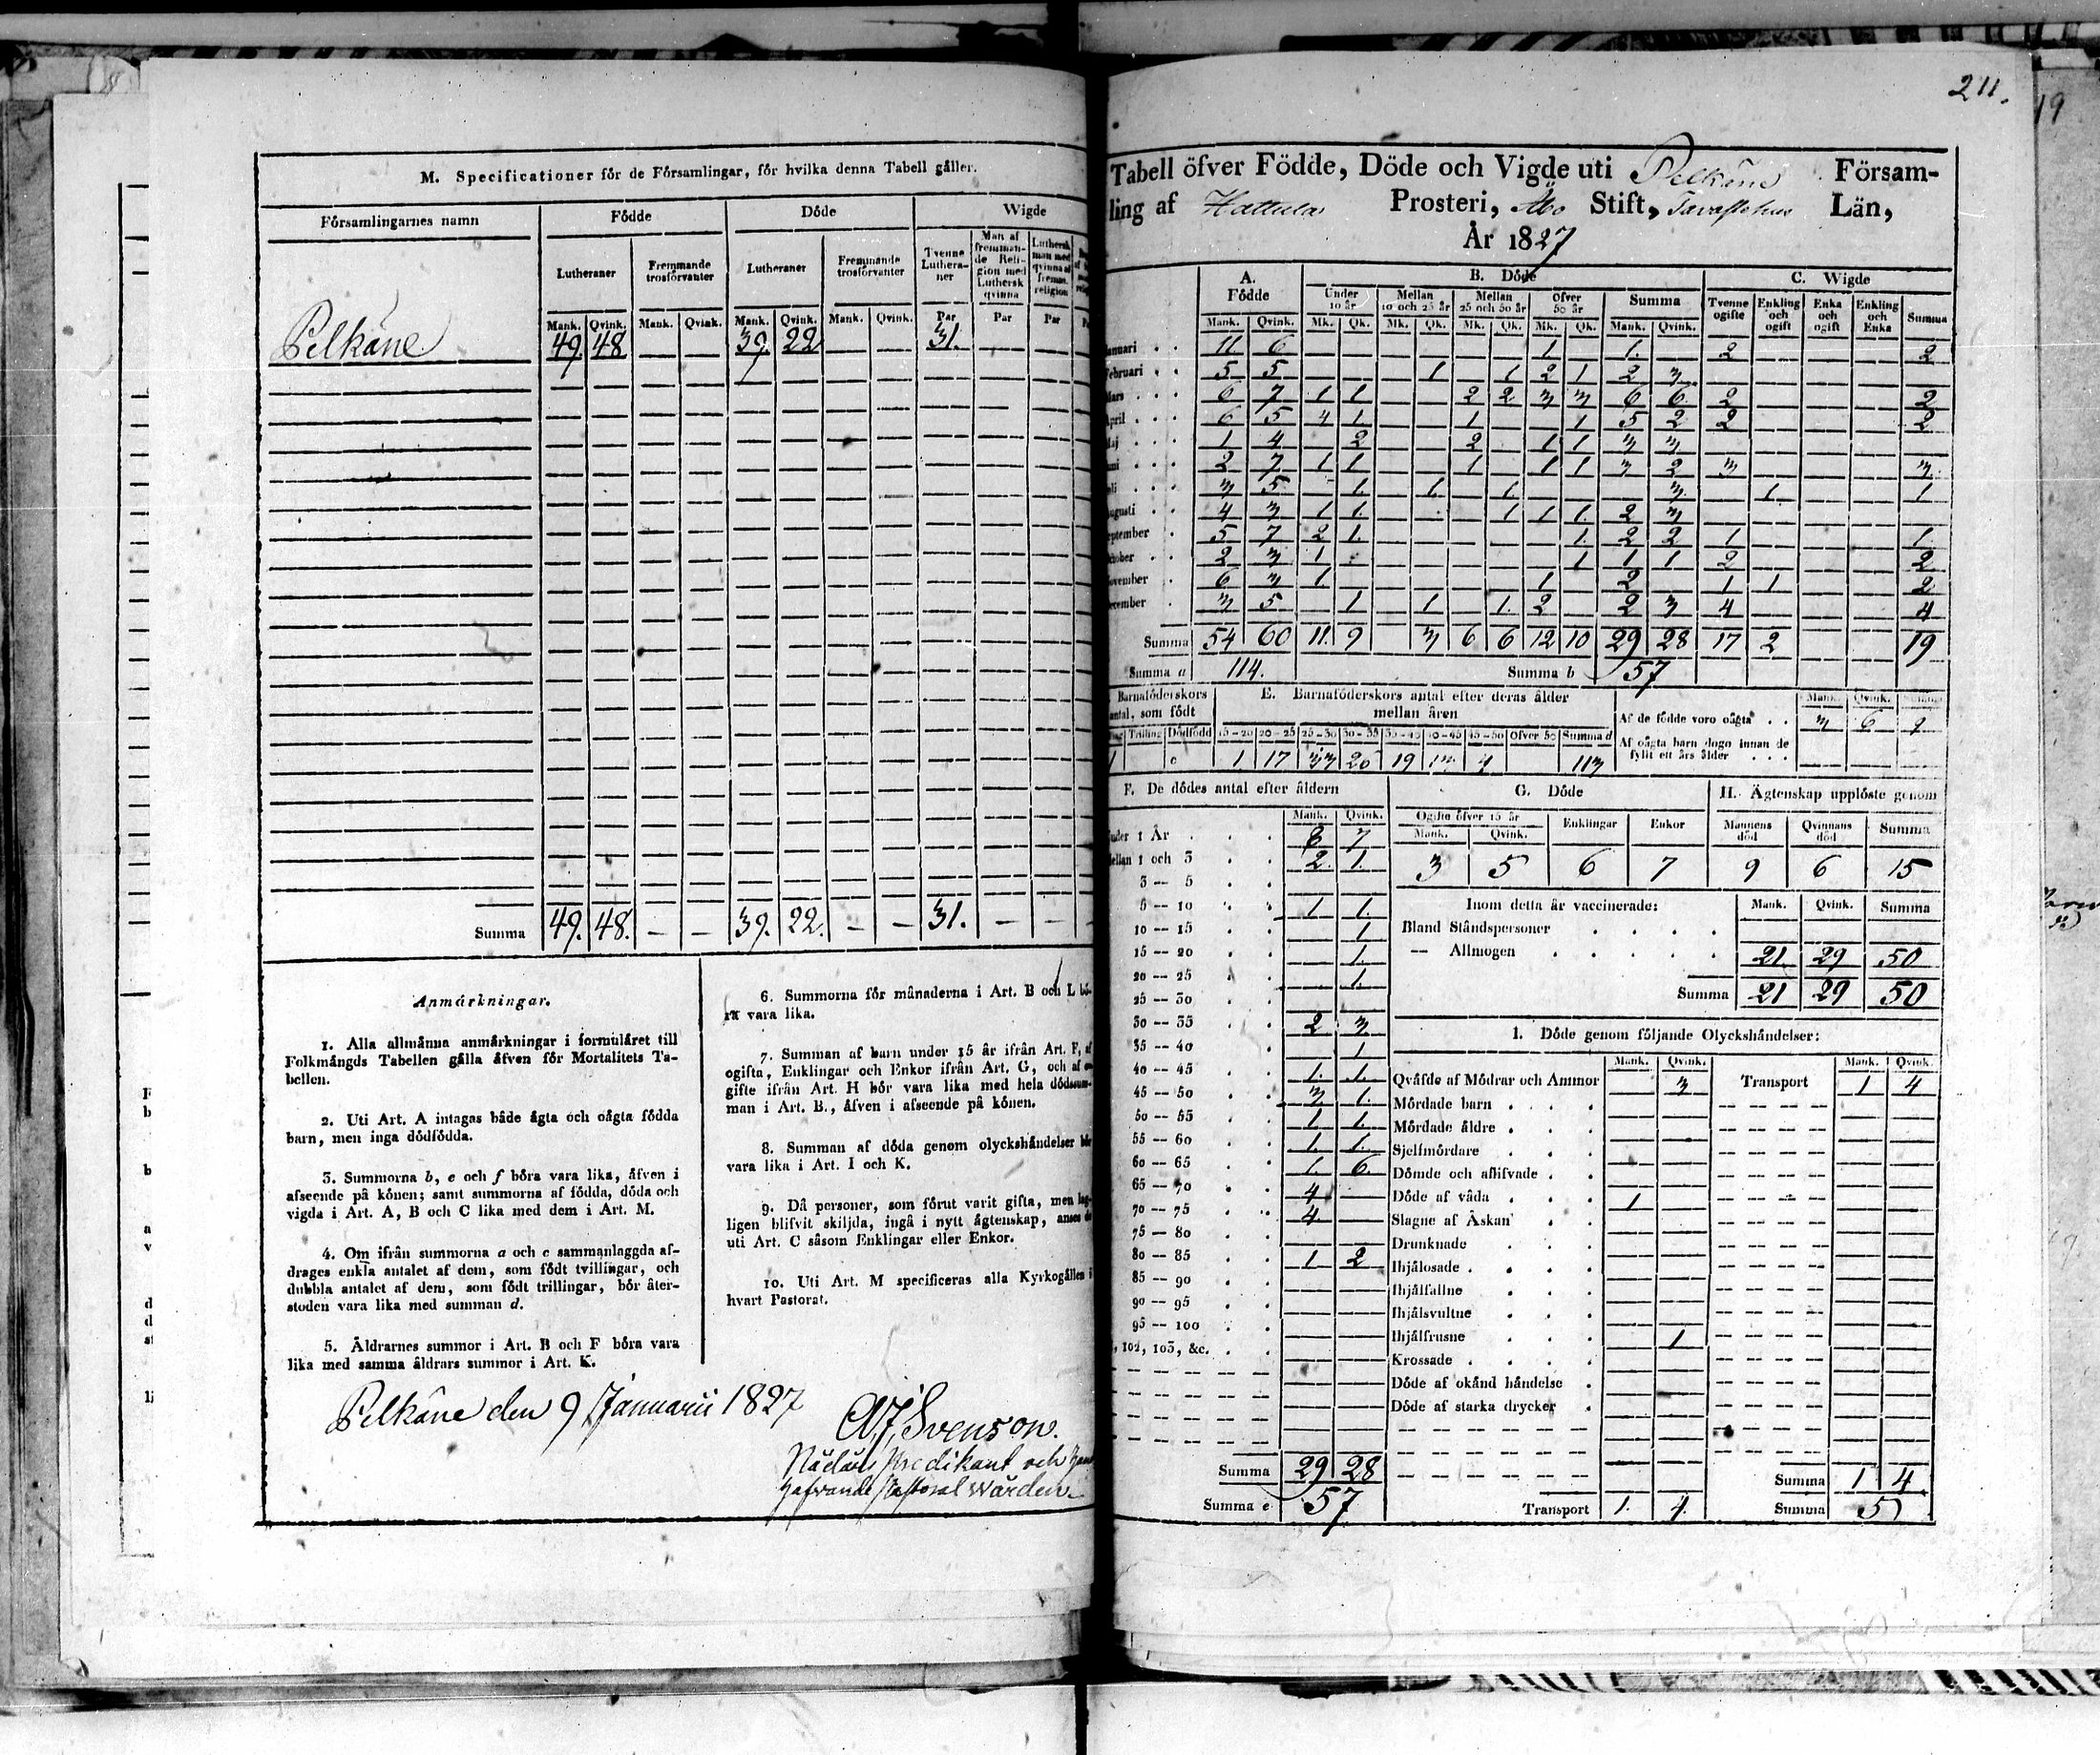 M. Specificationer för de Församlingar, för hvilka denna Tabell gäller.
Församlingarnes namn Födde Döde Wigde
Lutheraner Fremmande trosförvanter Lutheraner Fremmande trosförvanter Tvenne Lutheraner Man af fremmande Religion med Luthersk qvinna Luthersk man med qvinna af fremm. religion
Mank. Qvink. Mank. Qvink. Mank. Qvink. Mank. Qvink. Par Par Par
Pelkäne 49. 48 39. 22 31.
Summa 49. 48. — — 39. 22. — — 31. — —
Anmärkningar.
1. Alla allmänna anmärkningar i formuläret till
Folkmängds Tabellen gälla äfven för Mortalitets Ta-
bellen.
2. Uti Art. A intagas både ägta och oägta födda
barn, men inga dödfödda.
3. Summorna b, e och f böra vara lika, äfven i
afseende på könen; samt summorna af födda, döda och
vigda i Art. A, B och C lika med dem i Art. M.
4. Om ifrån summorna a och c sammanlaggda af-
drages enkla antalet af dem, som födt tvillingar, och
dubbla antalet af dem, som födt trillingar, bör åter-
stoden vara lika med summan d.
5. Åldrarnes summor i Art. B och F böra vara
lika med samma åldrars summor i Art. K.
6. Summorna för månaderna i Art. B och L bö-
ra vara lika.
7. Summan af barn under 15 år ifrån Art. F, af
ogifta, Enklingar och Enkor ifrån Art. G, och af
gifte ifrån Art. H bör vara lika med hela dödssum-
man i Art. B., äfven i afseende på könen.
8. Summan af döda genom olyckshändelser bör
vara lika i Art. I och K.
9. Då personer, som förut varit gifta, men lag-
ligen blifvit skiljda, ingå i nytt ägtenskap, anses de
uti Art. C såsom Enklingar eller Enkor.
10. Uti Art. M specificeras alla Kyrkogällen i
hvart Pastorat.
Pelkäne den 9 Januarii 1827
Svenson.
Predikant och
Pastoral Wården
211.
Tabell öfver Födde, Döde och Vigde uti Pelkäne Försam-
ling af Hattula Prosteri, Åbo Stift, Tavastehus Län,
År 1827
A. Födde B. Döde C. Wigde
Under 10 år Mellan 10 och 25 år Mellan 25 och 50 år Öfver 50 år Summa Tvenne ogifte Enkling och ogift Enka och ogift Enkling och Enka Summa
Mank. Qvink. Mk. Qk. Mk. Qk. Mk. Qk. Mk. Qk. Mank. Qvink.
Januari 11 6 1 1. 2 2
Februari 5 5 1 1 2 1 2 3
Mars 6 7 1 1 2 2 3 3 6 6 2 2
April 6 5 4 1 1 1 5 2 2 2
Maj 1 4 2 2 1 1 3 3
Juni 2 7 1 1 1 1 1 3 2 3 3
Juli 3 5 1 1 1 3 1 1
Augusti 4 3 1 1 1 1 1 2 3
September 5 7 2 1 1 2 2 1 1
October 2 3 1 1 1 1 2 2
November 6 3 1 1 2 1 1 2
December 3 5 1 1 1 2 2 3 4 4
Summa 54 60 11. 9 3 6 6 12 10 29 28 17 2 19
Summa a 114. Summa b 57
Barnaföderskors antal, som födt
Trilling Dödfödd
E. Barnaföderskors antal efter deras ålder
mellan åren
15-20 20-25 25-30 30-35 35-40 40-45 45-50 Öfver 50 Summa d
1 17 19 4 113
Mank. Qvink.
Af de födde voro oägta . . 3 6 9
Af oägta barn dogo innan de
fyllt ett års ålder . . .
F. De dödes antal efter åldern
Mank. Qvink.
Under 1 År 8 7
Mellan 1 och 3 2. 1.
3 — 5
5 — 10 1 1.
10 — 15 1
15 — 20 1.
20 — 25 1
25 — 30
30 — 35 2 3
35 — 40 1
40 — 45 1. 1.
45 — 50 3 1.
50 — 55 1 1.
55 — 60 1. 1.
60 — 65 1. 6.
65 — 70 4
70 — 75 4
75 — 80
80 — 85 1 2
85 — 90
90 — 95
95 — 100
102, 103, &c.
Summa 29 28
Summa e 57
G. Döde
Ogifte öfver 15 år Enklingar Enkor
Mank. Qvink.
3 5 6 7
H. Ägtenskap upplöste genom
Mannens död Qvinnans död Summa
9 6 15
Inom detta år vaccinerade: Mank. Qvink. Summa
Bland Ståndspersoner
— Allmogen 21 29 50
Summa 21 29 50
I. Döde genom följande Olyckshändelser:
Mank. Qvink. Mank. Qvink.
Qväfde af Mödrar och Ammor 3 Transport 1 4
Mördade barn
Mördade äldre
Sjelfmördare
Dömde och aflifvade
Döde af våda 1
Slagne af Åskan
Drunknade
Ihjälosade
Ihjälfallne
Ihjälsvultne
Ihjälfrusne 1
Krossade
Döde af okänd händelse
Döde af starka drycker
Summa 1 4
Transport 1. 4. Summa 5